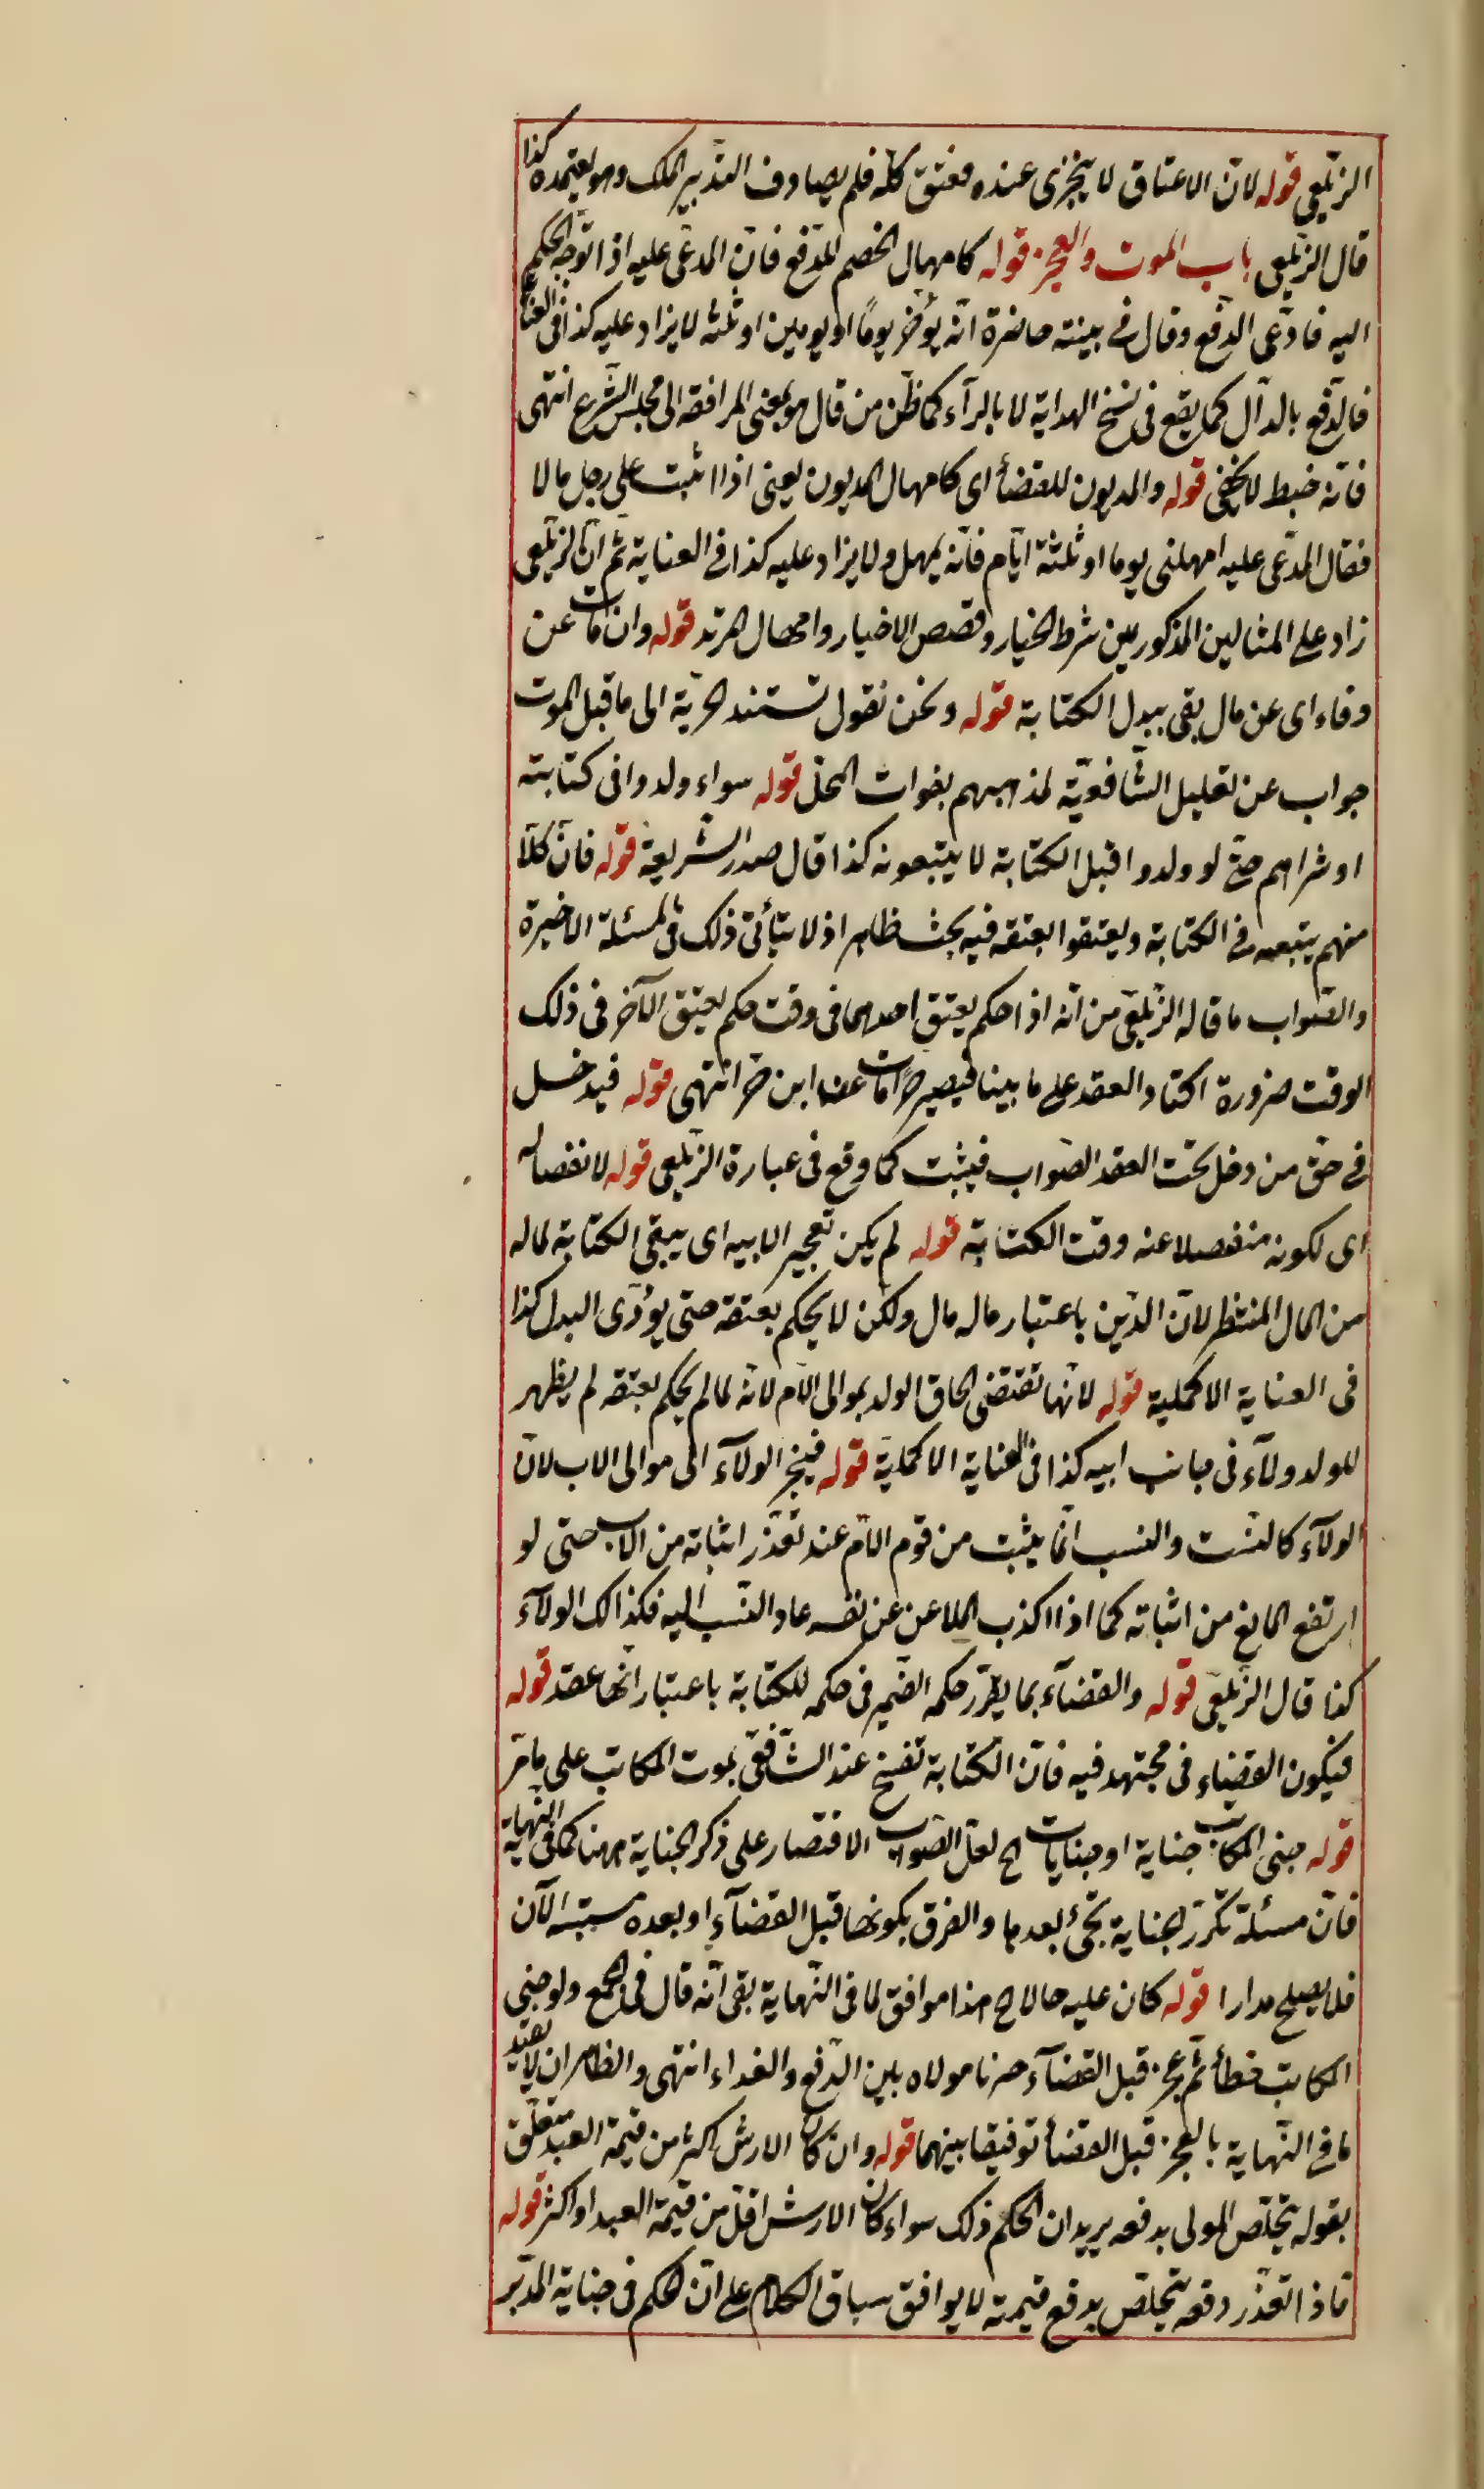 الزيلعي قوله لان الاعتاق لا يتجزى عنده فعتق كله فلم يصادف التدبير الملك وهو يعتمده كذا
قال الزيلعي باب الموت والعجز قوله كامهال الخصم للدفع فان المدعى عليه اذا توجه الحكم
اليه فادعى الدفع وقال لي بينة حاضرة انه يؤخر يومًا او يومين او ثلثه لا يزاد عليه كذا في العناية
فالدفع بالدال كما يقع في نسخ الهداية لا بالرآء كما ظن من قال هو بمعنى المرافقة الى مجلس الشرع انتهى
فانه خبط لا يخفى قوله والمديون للقضأ اى كامهال المديون يعنى اذا اثبت على رجل مالا
فقال المدعى عليه امهلنى يوما او ثلثة ايام فانه يمهل ولا يزاد عليه كذا في العناية ثم ان الزيلعي
زاد على المثالين المذكورين شرط الخيار و الاخيار وامهال المرتد قوله وان مات عن
وفاء اى عن مال يفى ببدل الكتابة قوله ونحن نقول تستند الحرية الى ما قبل الموت
جواب عن تعليل الشافعية لمذهبهم بفوات المحل قوله سواء ولدوا فى كتابته
او شراهم حتى لو ولدوا قبل الكتابة لا يتبعونه كذا قال صدر الشريعة قوله فان كلا
منهم يتبعه في الكتابة ويعتقوا بعتقه فيه بحث ظاهر اذ لا يتأتى ذلك في المسئلة الاخيرة
والصواب ما قاله الزيلعي من انه اذا حكم بعتق احدهما فى وقت حكم بعتق الآخر فى ذلك
الوقت ضرورة اتحاد العقد على ما بينا فيصير حرا مات عن ابن حر انتهى قوله فيدخل
في حق من دخل تحت العقد الصواب فيثبت كما وقع فى عبارة الزيلعي قوله لانفصاله
اى لكونه منفصلا عنه وقت الكتابة قوله لم يكن تعجيز الابيه اى يبقى الكتابة لماله
من المال المنتظر لان الدين باعتبار ماله مال ولكن لا يحكم بعتقه حتى يؤدى البدل كذا
فى العناية الاكملية قوله لانها تقتضى الحاق الولد بموالى الام لانه لما لم يحكم بعتقه لم يظهر
للولد ولآء فى جانب ابيه كذا فى العناية الاكملية قوله فينجر الولآء الى موالى الاب لان
الولآء كالنسب والنسب انما يثبت من قوم الام عند تعذر اثباته من الاب حتى لو
ارتفع المانع من اثباته كما اذا اكذب الملاعن عن نفسه عاد النسب اليه فكذلك الولآء
كذا قال الزيلعي قوله والقضآء بما يقرر حكمه الضمير فى حكمه للكتابة باعتبار انها عقد قوله
فيكون القضاء فى مجتهد فيه فان الكتابة تفسخ عند الشافعي بموت المكاتب على ما مر
قوله جنى المكاتب جناية او جنايات الخ لعل الصواب الاقتصار على ذكر الجناية ههنا كما فى النهاية
فان مسئلة تكرر الجناية تجئ بعدها والفرق بكونها قبل القضآء او بعده الآن
فلا يصلح مدارا قوله كان عليه حالا الخ هذا موافق لما فى النهاية بقى انه قال فى المجمع ولو جنى
المكاتب خطأ ثم عجز قبل القضآء خيرنا مولاه بين الدفع والفداء انتهى والظاهر ان لا يقيد
ما فى النهاية بالعجز قبل القضأ توفيقا بينهما قوله وان كان الارش اكثر من قيمة العبد متعلق
بقوله يتخلص المولى بدفعه يريد ان الحكم ذلك سواء كان الارش اقل من قيمة العبد او اكثر قوله
فاذا تعذر دفعه يتخلص بدفع قيمته لا يوافق سباق الكلام على ان الحكم فى جناية المدبر